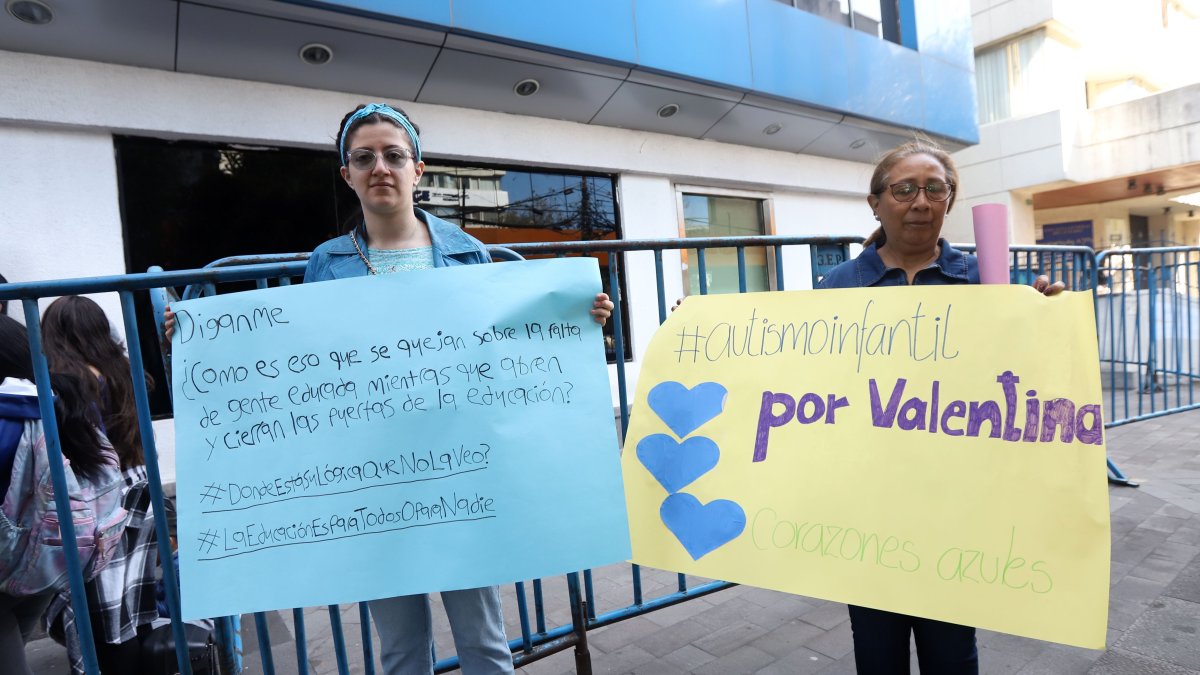 Diganme
¿Como es eso que se quejan sobre la falta
de gente educada mientras que abren
y cierran las puertas de la educación?
#DondeEstaSuLógicaQueNoLaVeo?
#LaEducaciónEsParaTodosOParaNadie
#autismoinfantil
por Valentina
Corazones azules